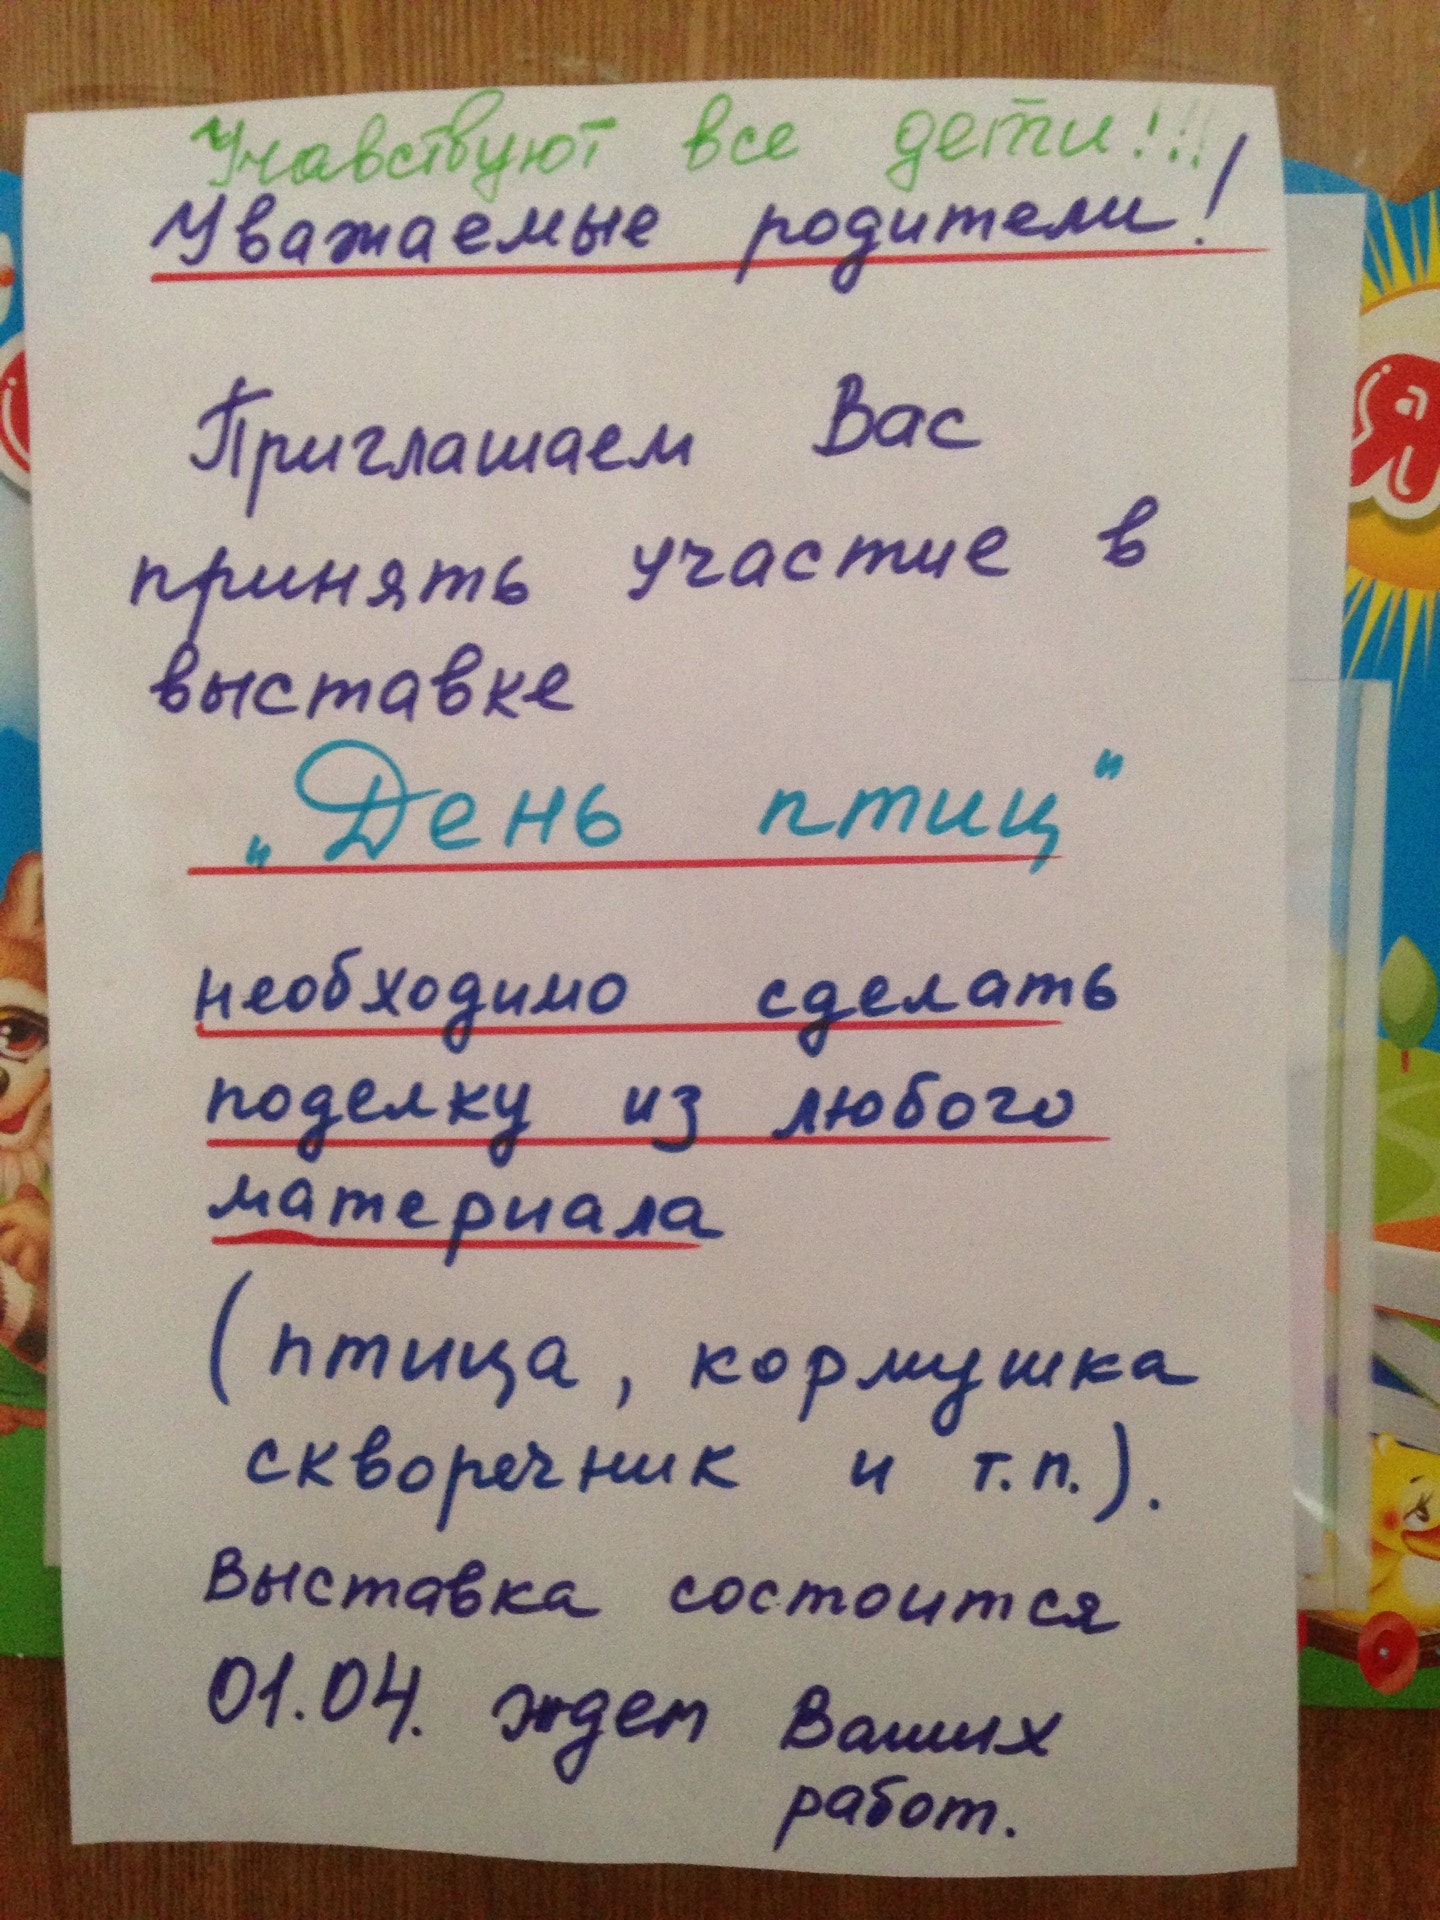 Учавствуют все дети!!!
Уважаемые родители!
Приглашаем Вас
принять участие в
выставке
„День птиц“
необходимо сделать
поделку из любого
материала
(птица, кормушка
скворечник и т.п.).
Выставка состоится
01.04. ждем Ваших
работ.
Я